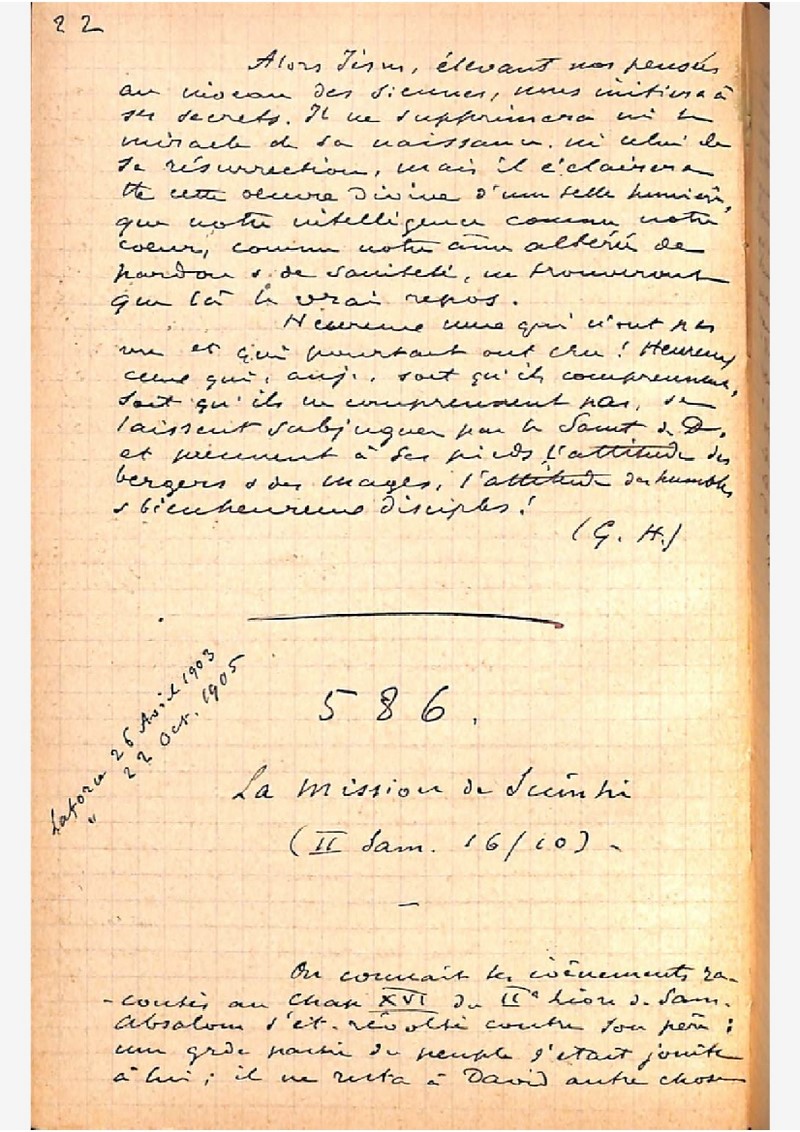 22
Alors Jésus, élevant nos pensées
au niveau des siennes, nous initiera à
ses secrets. Il ne supprimera ni le
miracle de sa naissance, ni celui de
sa résurrection, mais il éclairera
tte cette oeuvre divine d'une telle lumière,
que notre intelligence comme notre
coeur, comme notre âme altérée de
pardon & de sainteté, ne trouveront
que là le vrai repos.
Heureux ceux qui n'ont pas
vu et qui pourtant ont cru ! Heureux
ceux qui, auj., soit qu'ils comprennent,
soit qu'ils ne comprennent pas, se
laissent subjuguer par le Saint de D.
et prennent à ses pieds l'attitude des
bergers & des mages, l'attitude des humbles
& bienheureux disciples !
(G. H.)
Laforce 26 Avril 1903
" 22 Oct. 1905
586.
La mission de Scimhi
(II Sam. 16/10) -
On connait les évènements ra-
-contés au chap XVI du IIe livre de Sam.
Absalom s'ét. révolté contre son père ;
une grde partie du peuple s'était jointe
à lui ; il ne resta à David autre chose